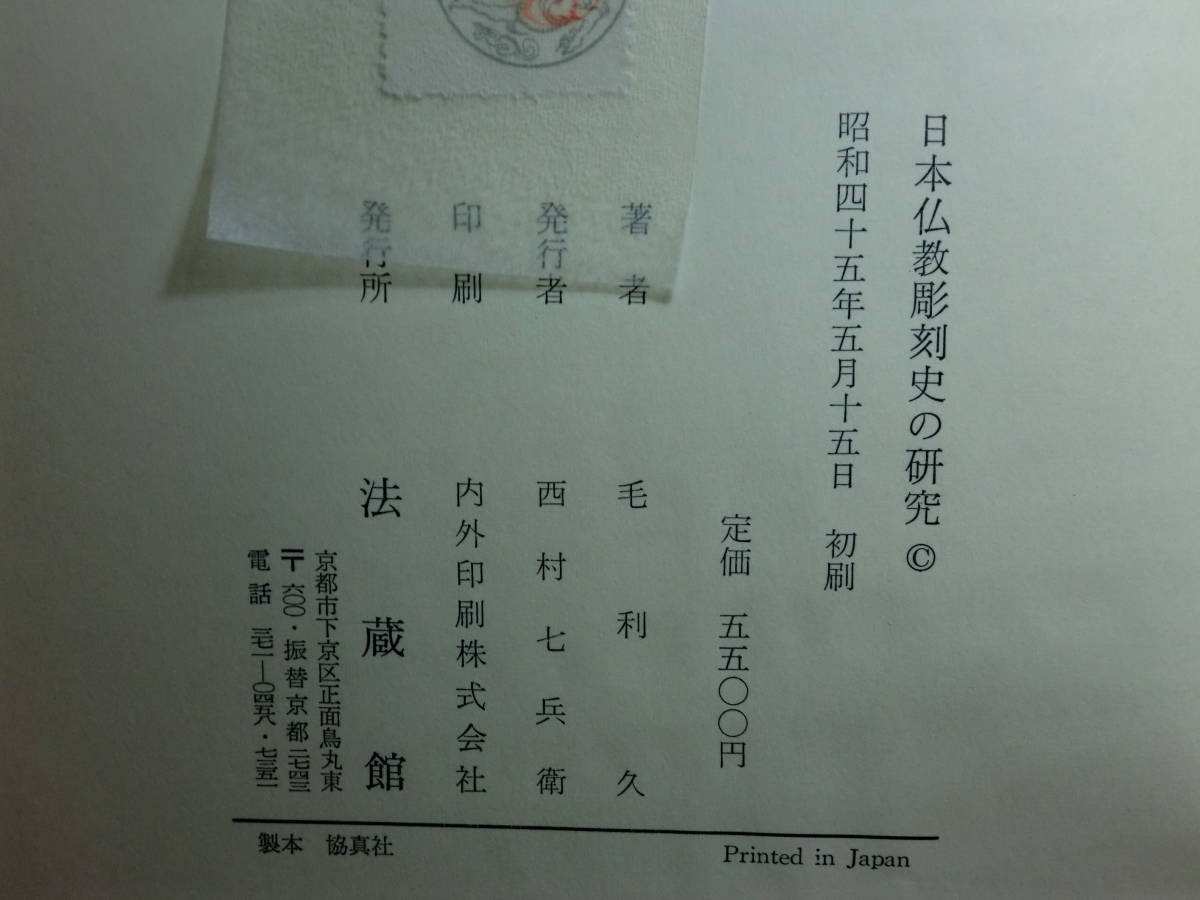 日本仏教彫刻史の研究 ©
昭和四十五年五月十五日 初刷
定価 五五〇〇円
著者 毛利久
発行者 西村七兵衛
印刷 内外印刷株式会社
発行所 法蔵館
京都市下京区正面烏丸東
〒六〇〇・振替京都二七四三
電話 三七一―〇四五八・七三五一
製本 協真社
Printed in Japan